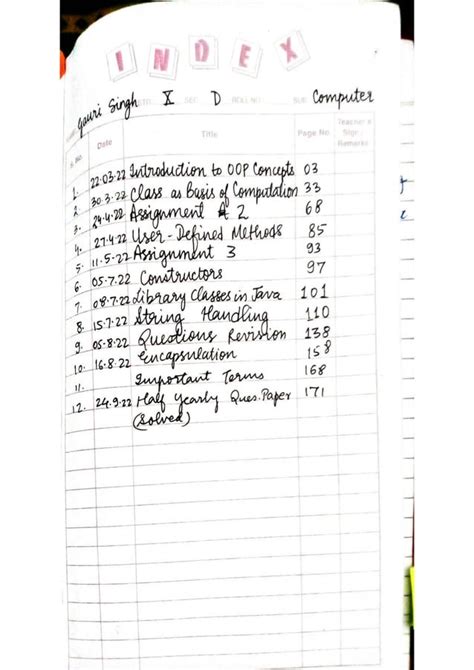 INDEX
Gauri Singh STD. X SEC. D ROLL NO. SUB. Computer
S. No. Date Title Page No. Teacher's Sign / Remarks
1. 22.03.22 Introduction to OOP Concepts 03
2. 30.3.22 Class as Basis of Computation 33
3. 24.4.22 Assignment 2 68
4. 27.4.22 User-Defined Methods 85
5. 11.5.22 Assignment 3 93
6. 05.7.22 Constructors 97
7. 08.7.22 Library Classes in Java 101
8. 15.7.22 String Handling 110
9. 05.8.22 Questions Revision 138
10. 16.8.22 Encapsulation 158
11. Important Terms 168
12. 24.9.22 Half Yearly Ques. Paper 171
(Solved)